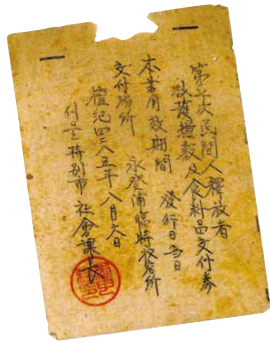 第三次民間人釋放者
救護糧穀及食料品交付券
本券有效期間 發行日字日
交付場所 永登浦臨時收容所
檀紀四二八五年八月六日
서울特別市 社會課長